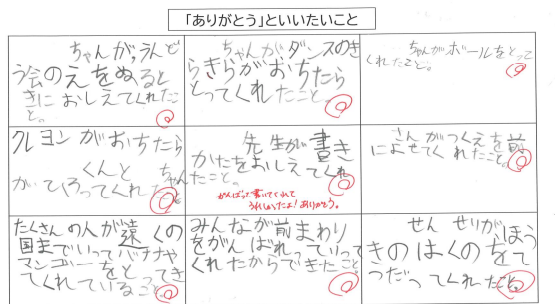 「ありがとう」といいたいこと
ちゃんが,うんど
う会のえをぬると
きにおしえてくれたこ
と。
ちゃんがダンスのき
らきらがおちたら
とってくれたこと。
ちゃんがボールをとって
くれたこと。
クレヨンがおちたら
くんと ちゃん
がひろってくれたこと
先生が書き
かたをおしえてくれ
たこと。
がんばって書いてくれて
うれしいよ!ありがとう。
さんがつくえを前
によせてくれたこと。
たくさんの人が遠くの
国までいってバナナや
マンゴーをとってき
てくれていること。
みんなが前まわり
をがんばれっていって
くれたからできたこと。
せん せいが ほう
きのはくのをて
つだってくれたこと。